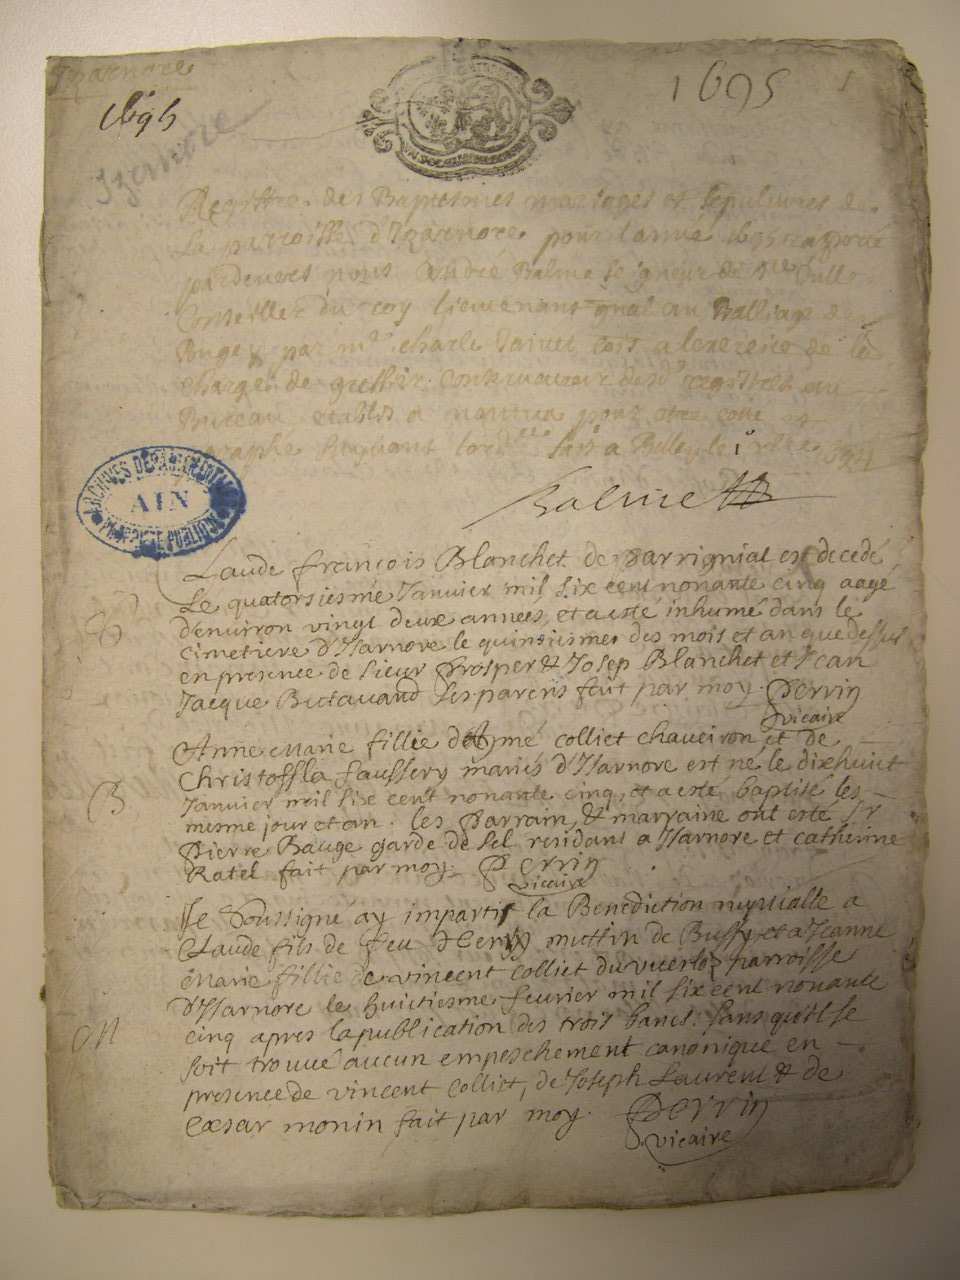 Izarnore
1695
1695
1
Izernore
Registre des Baptesmes mariages et sepultures de
La parroisse d'Izarnore pour l'année 1695
pardevers nous André Balme seigneur de
Conseiller du roy lieutenant gnal au Balliage de
Bugey par mr charle
charge de greffier conservateur des registres au
Bureau établis a nantua pour estre cotté et
paraphé suivant lordce fait a Belley le
Balme
ARCHIVES DÉPARTEMENTALES
AIN
PROPRIÉTÉ PUBLIQUE
Claude françois Blanchet de est decedé
Le quatorsiesme Janvier mil six cent nonante cinq aagé
d'environ vingt deux années, et a esté inhumé dans le
cimetiere d'Isarnore le quinsiesme des mois et an que dessus
en presence de sieur Prosper & Josep Blanchet et Jean
Jacque les parens fait par moy Perrin
vicaire
Anne Marie fillie d'Aymé colliet chaveiron et de
Christoffla faussery mariés d'Isarnore est né le dixhuict
B
Janvier mil six cent nonante cinq, et a esté baptisé les
mesme jour et an. les Parrain, & marraine ont esté Sr
Pierre Bauge garde de sel residant a Isarnore et catherine
Ratel fait par moy. Perrin
vicaire
Je soussigné ay imparti la Benediction nuptialle a
Claude fils de feu muttin de Bussy et a Jeanne
Marie fillie de vincent colliet du parroisse
d'Isarnore le huictiesme fevrier mil six cent nonante
cinq apres la publication des trois bancs. sans qu'il se
M
soit trouvé aucun empeschement canonique en
presence de vincent colliet, de Joseph Laurent & de
Cæsar monin fait par moy. Perrin
vicaire